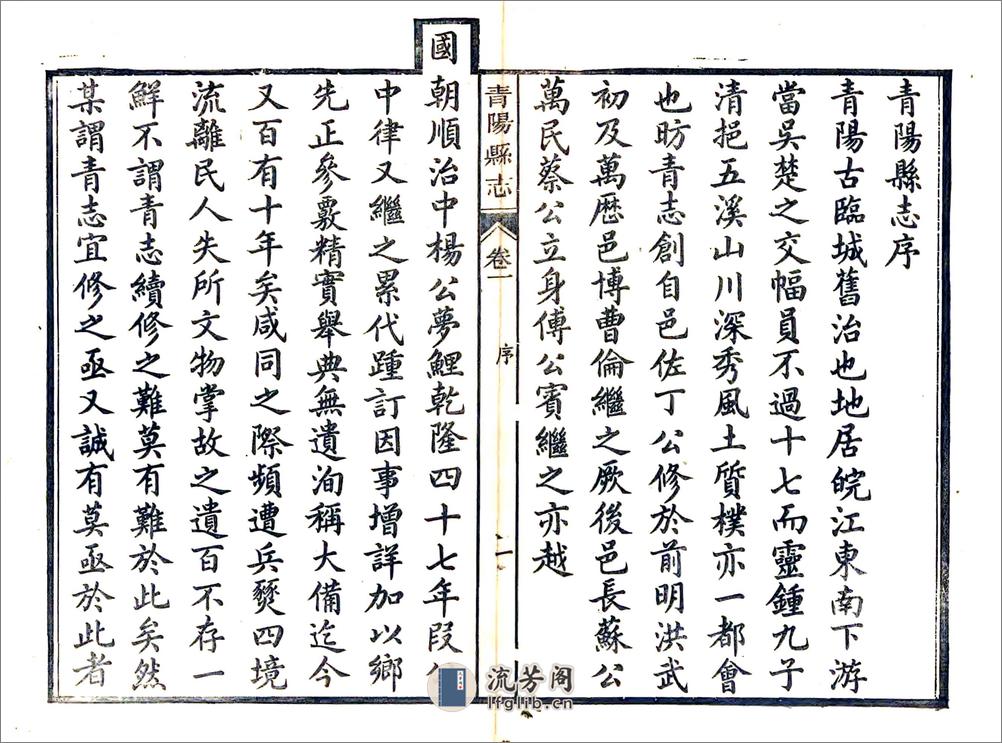 青陽縣志序
青陽古臨城舊治也地居皖江東南下游
當吳楚之交幅員不過十七而靈鍾九子
清挹五溪山川深秀風土質樸亦一都會
也昉青志創自邑佐丁公修於前明洪武
初及萬歷邑博曹倫繼之厥後邑長蘇公
萬民蔡公立身傅公賓繼之亦越
青陽縣志
卷一
序
一
國朝順治中楊公夢鯉乾隆四十七年段公
中律又繼之累代踵訂因事增詳加以鄉
先正參覈精實舉典無遺洵稱大備迄今
又百有十年矣咸同之際頻遭兵燹四境
流離民人失所文物掌故之遺百不存一
鮮不謂青志續修之難莫有難於此矣然
某謂青志宜修之亟又誠有莫亟於此者
流芳阁
lfglib.cn